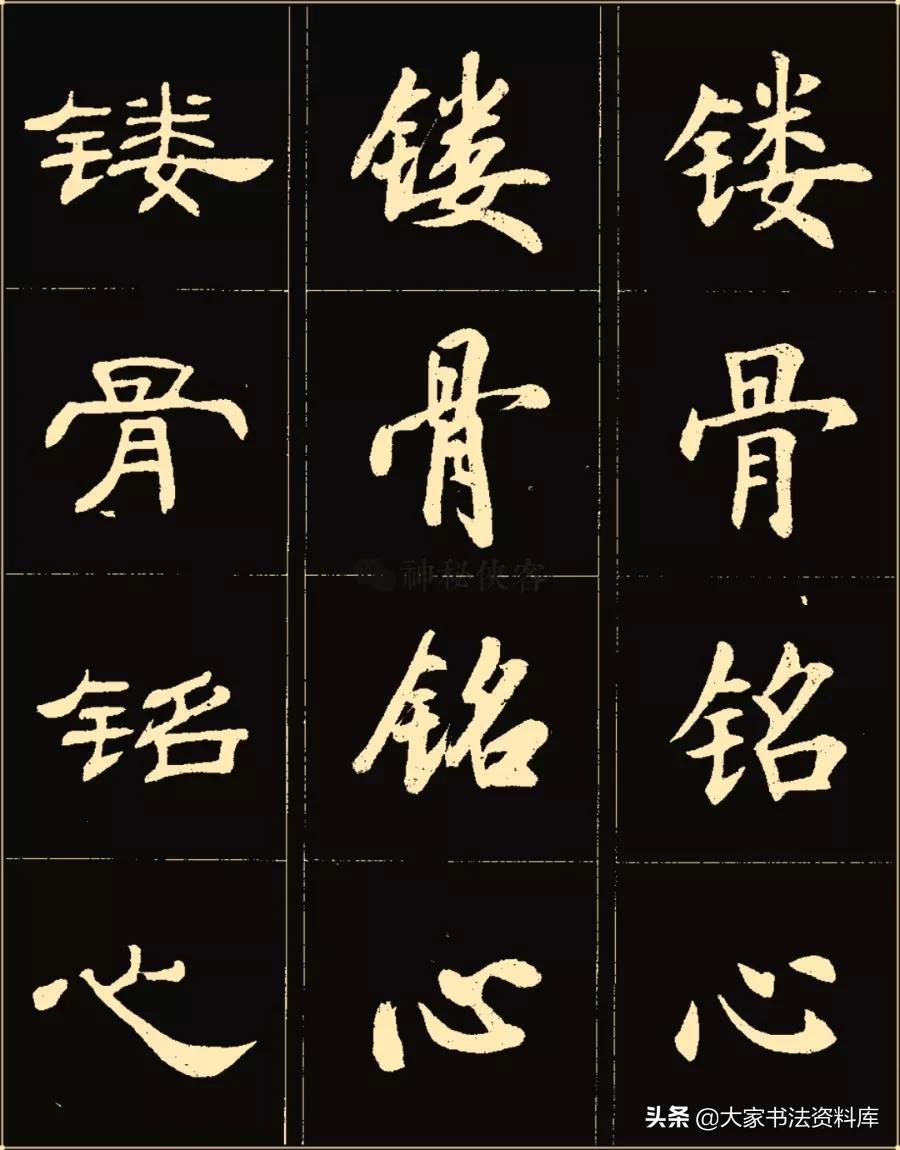 镂 镂 镂
骨 骨 骨
铭 铭 铭
心 心 心
神秘侠客
头条 @大家书法资料库